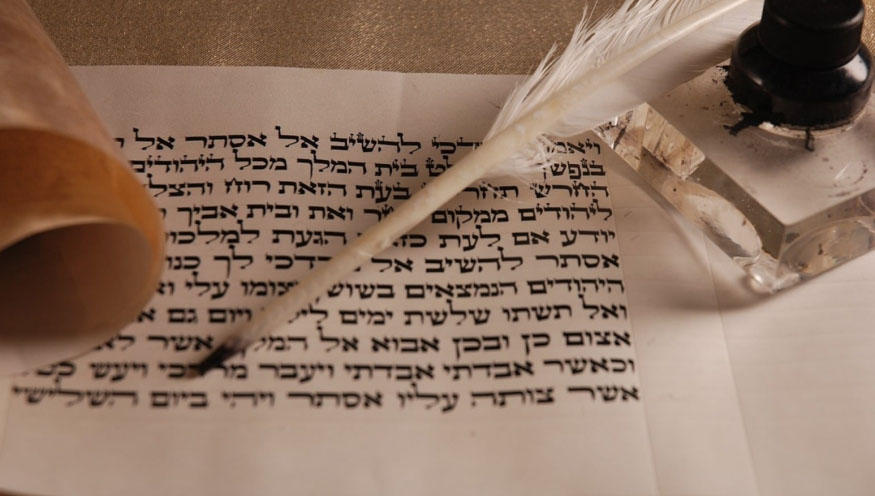 ויאמר להשיב אל אסתר אל
בנפשך בית המלך מכל היהודים
החרש בעת הזאת רוח והצלה
ליהודים ממקום ואת ובית אביך
יודע אם לעת הגעת למלכות
אסתר להשיב אל מרדכי לך כנוס
היהודים הנמצאים בשושן וצומו עלי
ואל תשתו שלשת ימים לילה ויום גם
אצום כן ובכן אבוא אל המלך אשר
וכאשר אבדתי אבדתי ויעבר מרדכי ויעש
אשר צותה עליו אסתר ויהי ביום השלישי